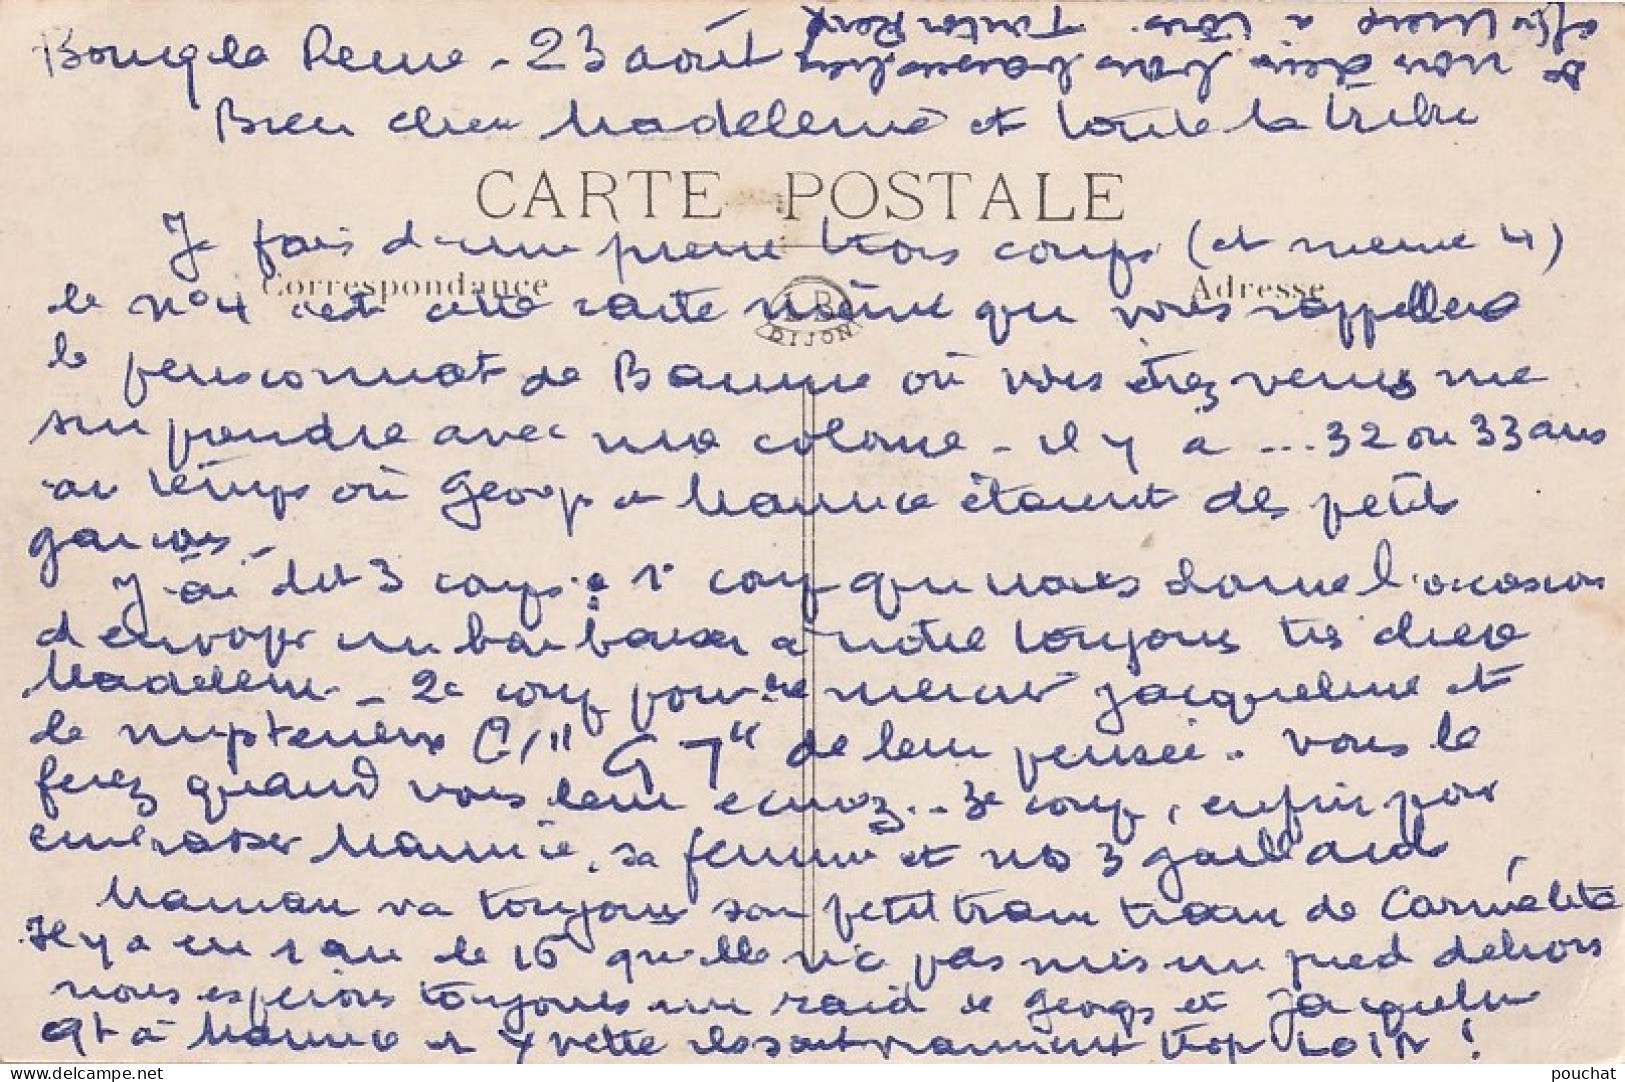 Bourg la Reine - 23 août
Bien chère Madeleine et toute la tribu
CARTE POSTALE
Je fais d'une pierre trois coups (et même 4)
Correspondance Adresse
le n° 4 c'est cette carte même que vous rappellera
B
DIJON
le pensionnat de Beaune où vous étiez venus me
surprendre avec ma colonie - il y a ... 32 ou 33 ans
au temps où Georges et Maurice étaient des petits
garçons -
J'ai dit 3 coups : 1° coup que nous donne l'occasion
d'envoyer un bon baiser à notre toujours très chère
Madeleine - 2e coup pour remercier Jacqueline et
le mystérieux "G 7" de leur pensée. Vous le
ferez quand vous leur écrirez... 3e coup, enfin pour
embrasser Maurice, sa femme et nos 3 gaillards
Maman va toujours son petit tran tran de Carmélite
Il y a eu 1 an le 15 qu'elle n'a pas mis un pied dehors
nous espérons toujours un raid de Georges et Jacqueline
Qt à Maurice et Yvette ils sont vraiment trop loin !
De nous deux bons baisers
affectueux à tous.
pouchat